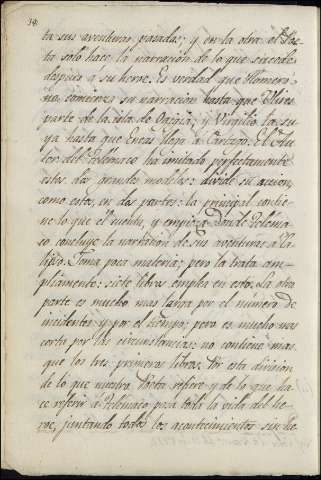 ta sus aventuras pasadas; y en la otra el Poe-
ta solo hace la narracion de lo que sucede
despues a su heroe. Es verdad que Homero
no comienza su narracion hasta que Ulises
parte de la isla de Ogigia; y Virgilio la su-
ya hasta que Eneas llega a Cartago. El Au-
tor del Telemaco ha imitado perfectamente
estos dos grandes modelos: divide su accion,
como estos, en dos partes: la principal contie-
ne lo que el cuenta, y empieza donde Telema-
co concluye la narracion de sus aventuras a Ca-
lipso. Toma poca materia; pero la trata am-
pliamente: siete libros emplea en esto. La otra
parte es mucho mas larga por el número de
incidentes y por el tiempo; pero es mucho mas
corta por las circunstancias: no contiene mas
que los tres primeros libros. Por esta division
de lo que nuestro Poeta refiere y de lo que ha-
ce referir a Telemaco pasa toda la vida del he-
roe, juntando todos los acontecimientos sin he-